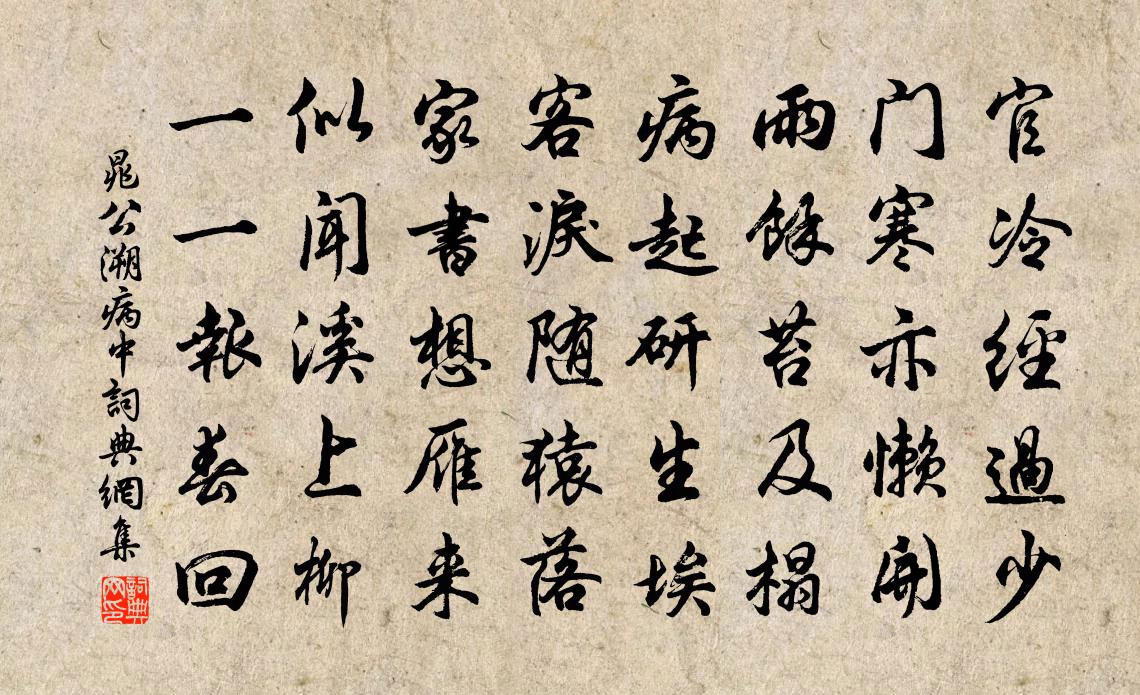 官冷經過少
门寒亦懶開
雨餘苔及榻
病起研生埃
客淚随猿落
家書想雁来
似闻溪上柳
一一報春回
晁公溯病中詞典網集
詞典网印